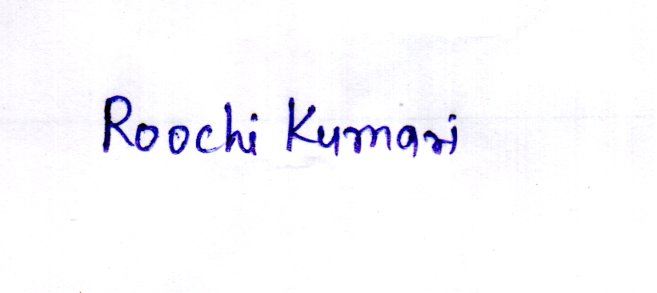 Roochi Kumari